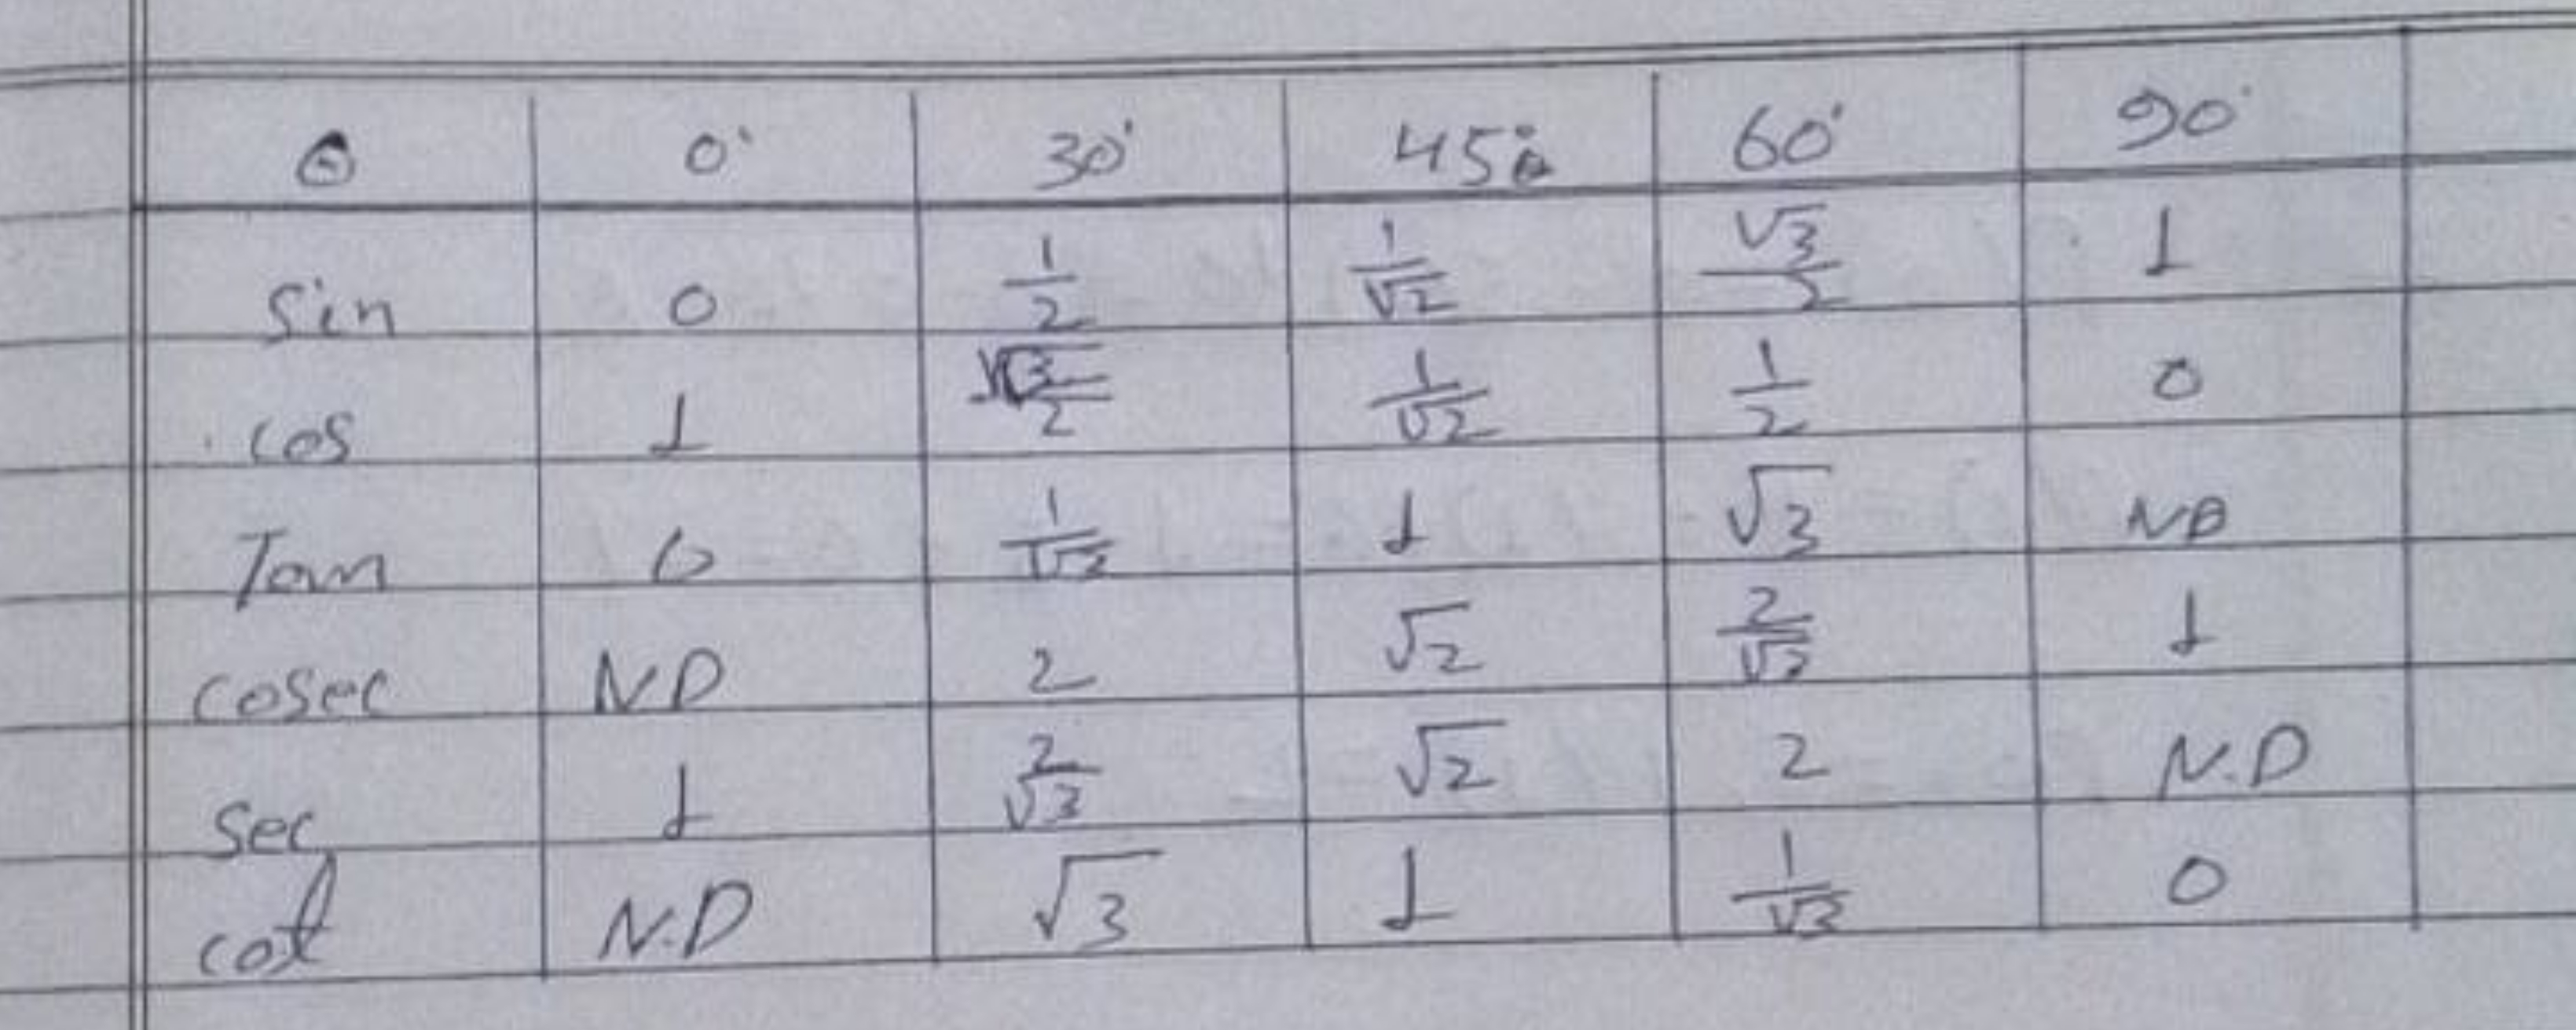 θ 0° 30° 45° 60° 90°
Sin 0 1/2 1/√2 √3/2 1
cos 1 √3/2 1/√2 1/2 0
Tan 0 1/√3 1 √3 ND
cosec N.D 2 √2 2/√3 1
Sec 1 2/√3 √2 2 N.D
cot N.D √3 1 1/√3 0